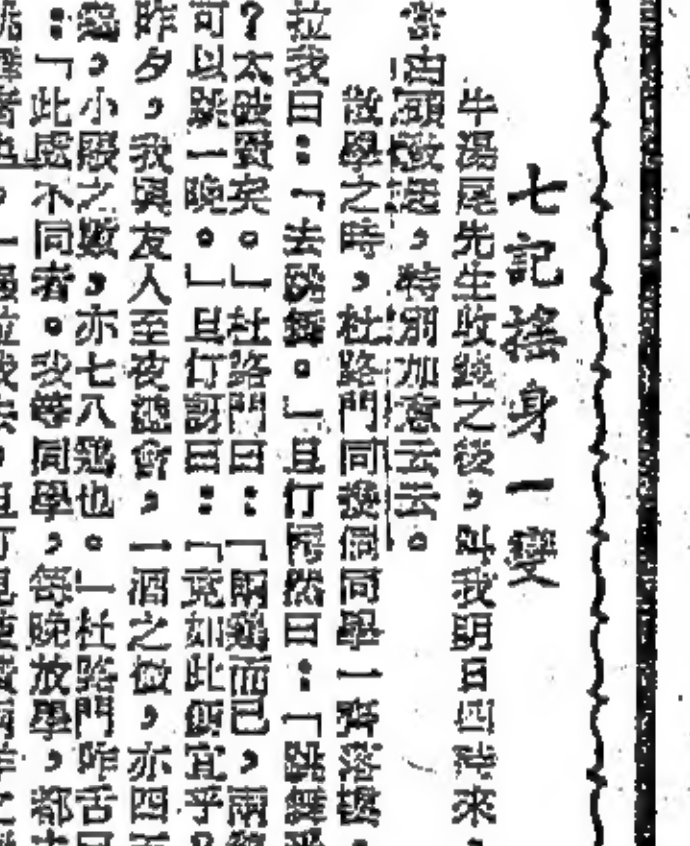 七記搖身一變
牛湯尾先生收錢之後，叫我明日四時來，
云頭敎起，特別加意云云。
散學之時，杜路門同幾個同學一齊落樓，
拉我曰：「去跳舞。」且仃愕然曰：「跳舞乎
？太破費矣。」杜路門曰：「兩鷄而已，兩鷄
可以跳一晚。」且仃訝曰：「竟如此便宜乎？
昨夕，我與友人至夜總會，一酒之微，亦四五
鷄，小賬之數，亦七八鷄也。」杜路門咋舌曰
：「此處不同者。我等同學，每晚放學，都去